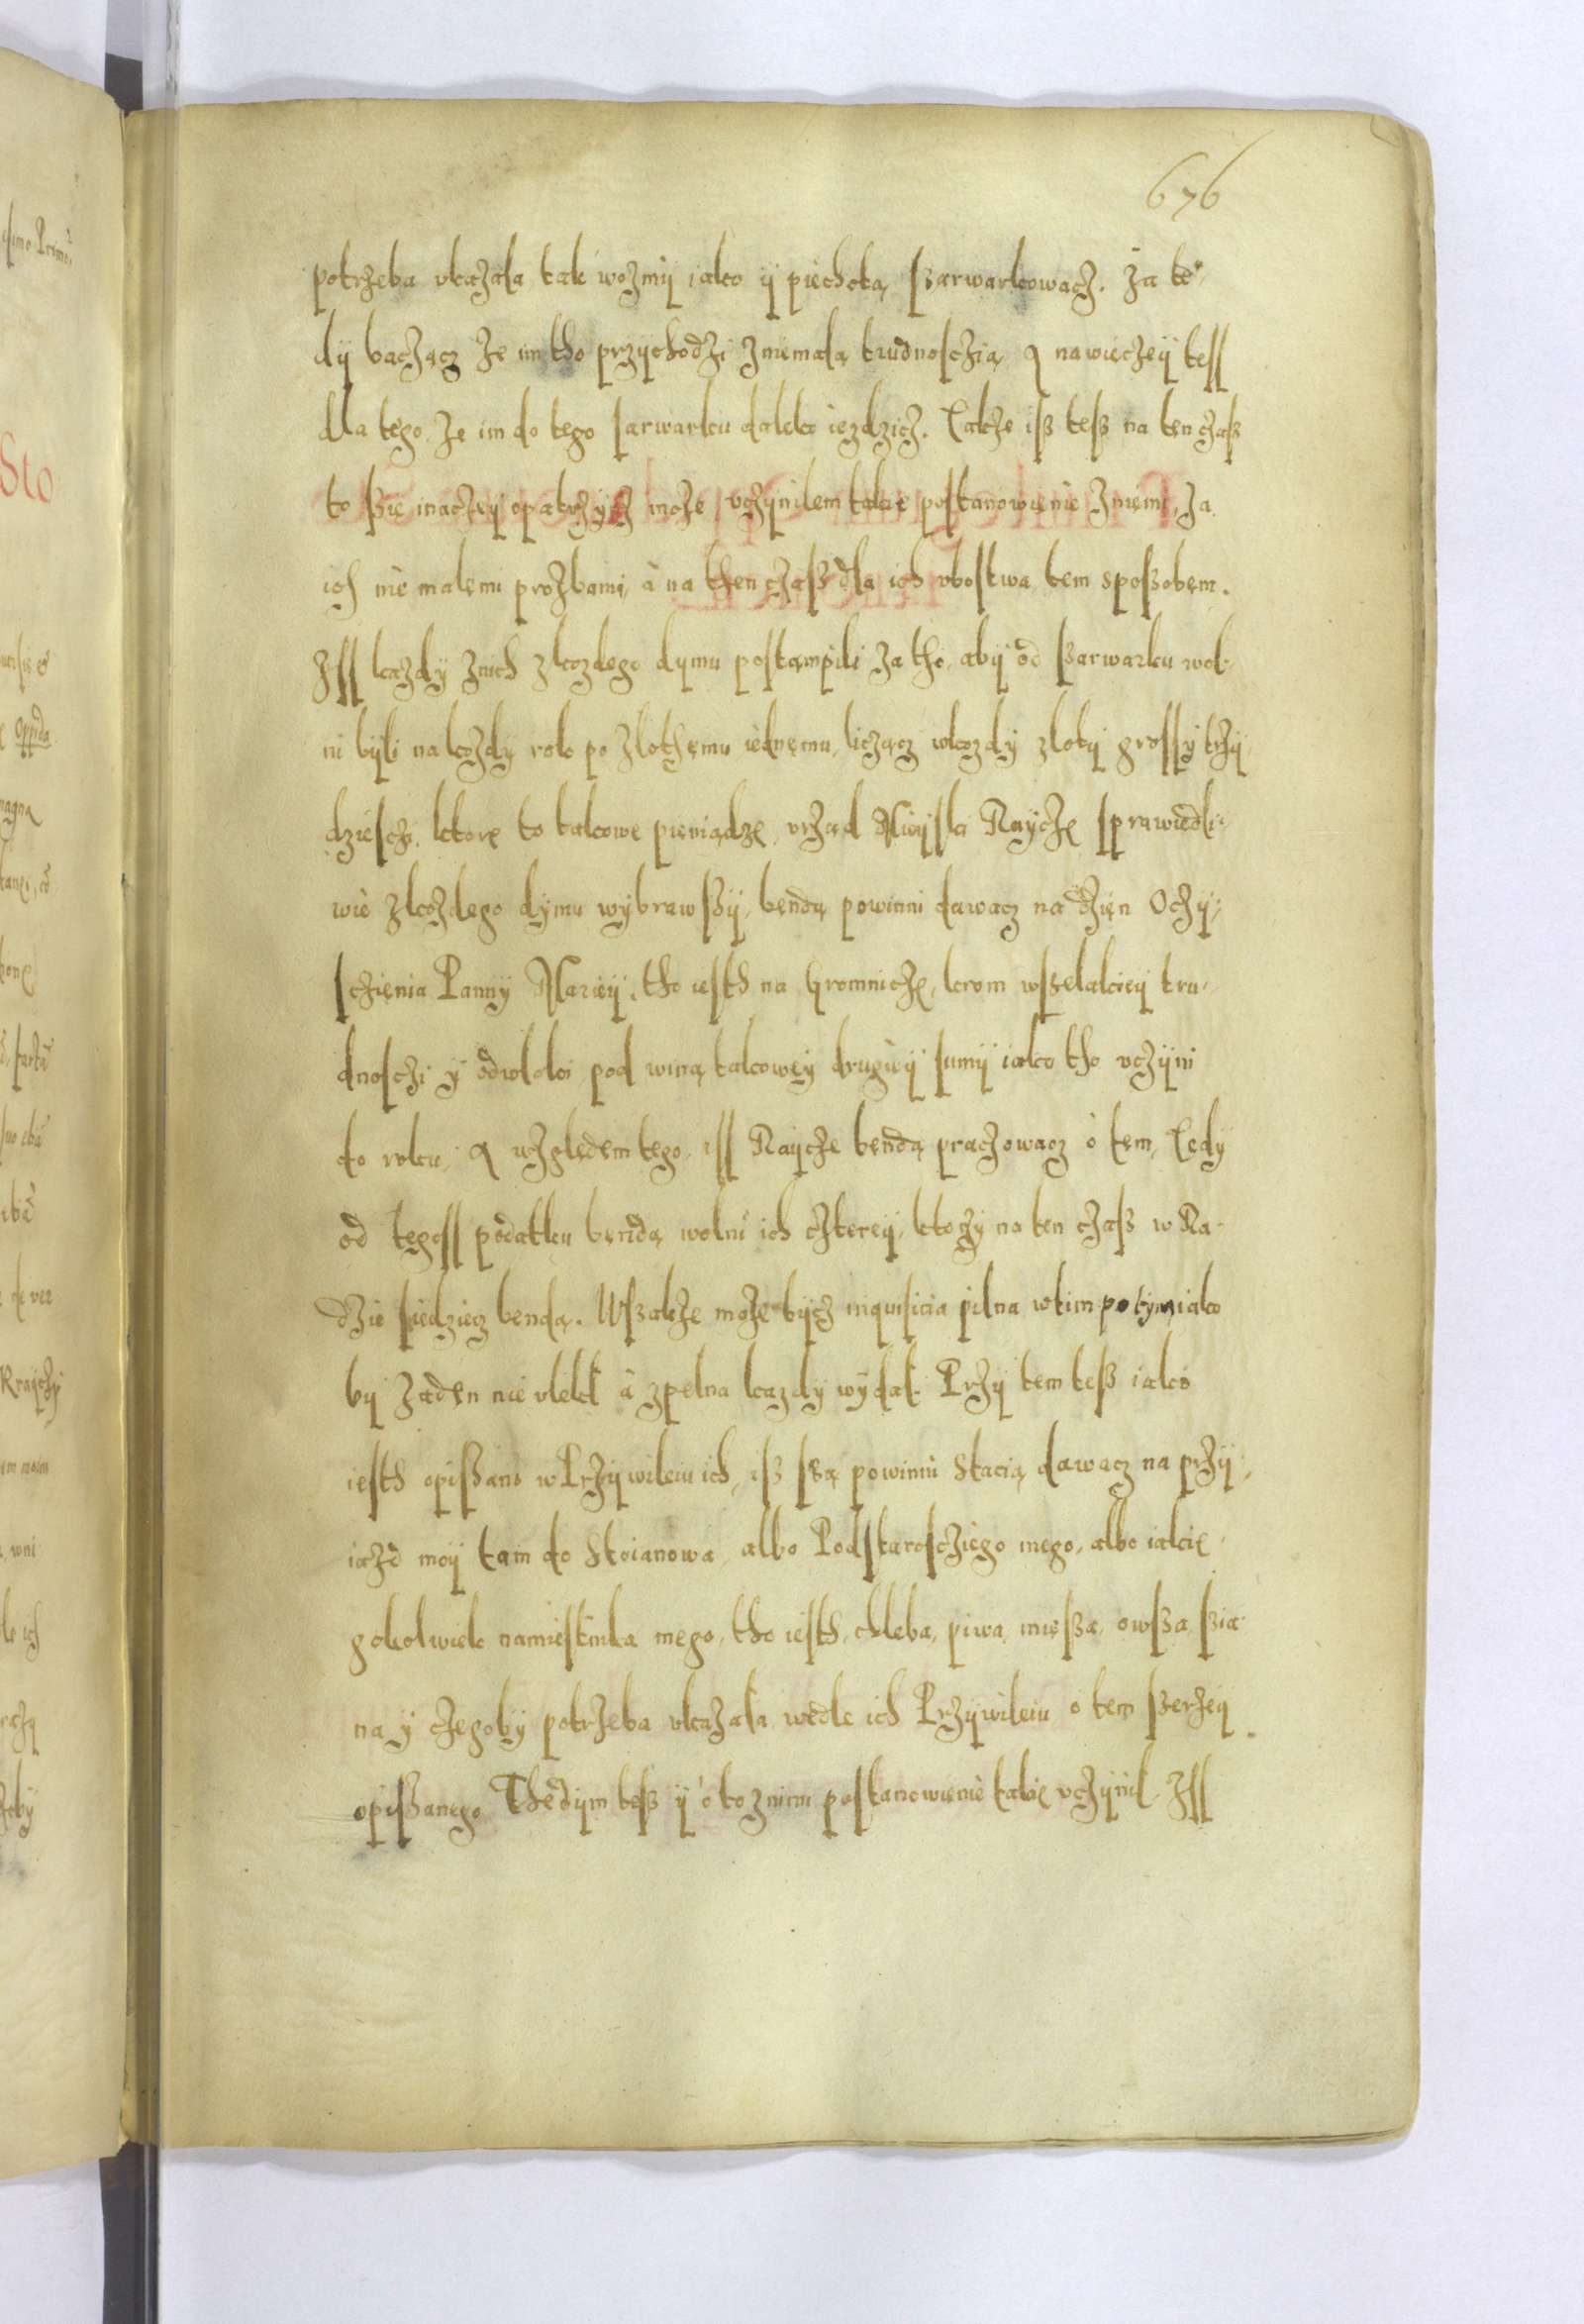 676
potrzeba vkazala tak wozmÿ iako ÿ piechotą, szarwarkowacz. Ja te
dÿ baczącz ze im tho przychodzi zniemałą trudnoscżią, A nawieczeÿ tess
dla tego ze im do tego sarwarku daleko iezdzicz. Takze isz tesz na ten czasz
to szie inaczeÿ opatrzÿcz moze vczÿnilem takie postanowienie zniemi, za
ich nie małemi prozbami, à na then czasz dla ich vbostwa, tem sposzobem.
Iss kazdÿ znich zkozdego dymu postąmpili za tho, abÿ od szarwarku wol
ni bÿli na kozdÿ rok po zlothemu iednemu, liczącz wkozdÿ zlotÿ grossÿ trzÿ
dziescżi, ktore to takowe pieniądze, vrząd Mieÿski Rayczę sprawiedli
wie zkozdego dÿmu wÿbrawszÿ, bendą powinni dawacz na dzien Oczÿ
sczienia Pannÿ Marieÿ, tho iesth na Gromniczę, krom wszelakieÿ tru
dnosczi ÿ odwloki pod winą takoweÿ drugieÿ sumÿ iako tho vczÿni
do roku, A względem tego, iss Raÿcze bendą pracżowacz ò tem, Tedÿ
od tegoss podatku bendą wolni ich czterzeÿ, ktorzÿ na ten czasz w Ra
dzie siedziecz bendą. Wszakze moze bÿcz inquisicia pilna wtim potÿm iako
bÿ zaden nie vlekł à zpelna kazdÿ wÿdał. Przÿ tem tesz iako
iesth opiszano w Przÿwileiu ich, isz są powinni Stacią dawacz na przÿ
iazd moÿ tam do Stoianowa, albo Podstarosczie̦go mego, albo iakie
gokolwiek namiestnika mego, tho iesth, chleba, piwa, miesza, owsza, szia
na ÿ czegobÿ potrzeba vkazała wedle ich Przÿwileiu o tem szerzeÿ
opiszanego. Thedÿm tesz ÿ o to znimi postanowienie takie vczÿnił. Iss